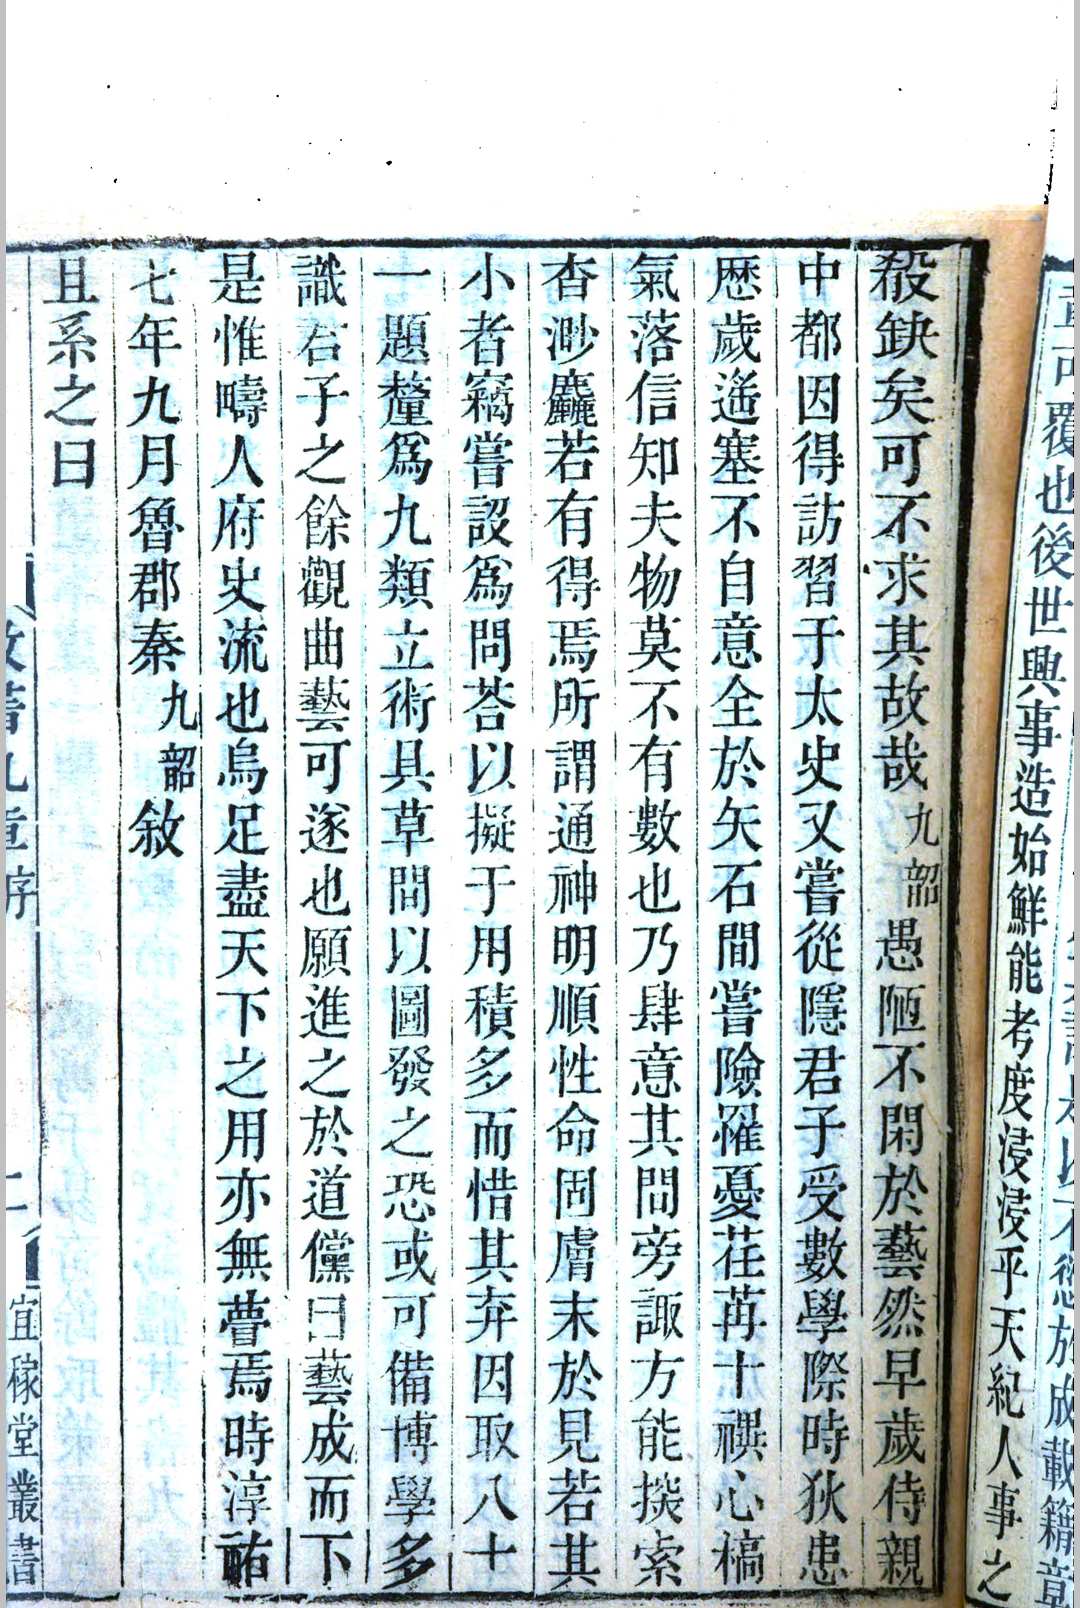 章可覆也後世興事造始鮮能考度浸浸乎天紀人事之
殽缺矣可不求其故哉九韶愚陋不閑於藝然早歲侍親
中都因得訪習于太史又嘗從隱君子受數學際時狄患
歷歲遥塞不自意全於矢石間嘗險罹憂荏苒十禩心槁
氣落信知夫物莫不有數也乃肆意其間旁諏方能探索
杳渺麤若有得焉所謂通神明順性命固膚末於見若其
小者竊嘗設爲問荅以擬于用積多而惜其弃因取八十
一題釐爲九類立術具草間以圖發之恐或可備博學多
識君子之餘觀曲藝可遂也願進之於道儻曰藝成而下
是惟疇人府史流也烏足盡天下之用亦無瞢焉時淳祐
七年九月魯郡秦九韶敘
且系之曰
數書九章序
二
宜稼堂叢書